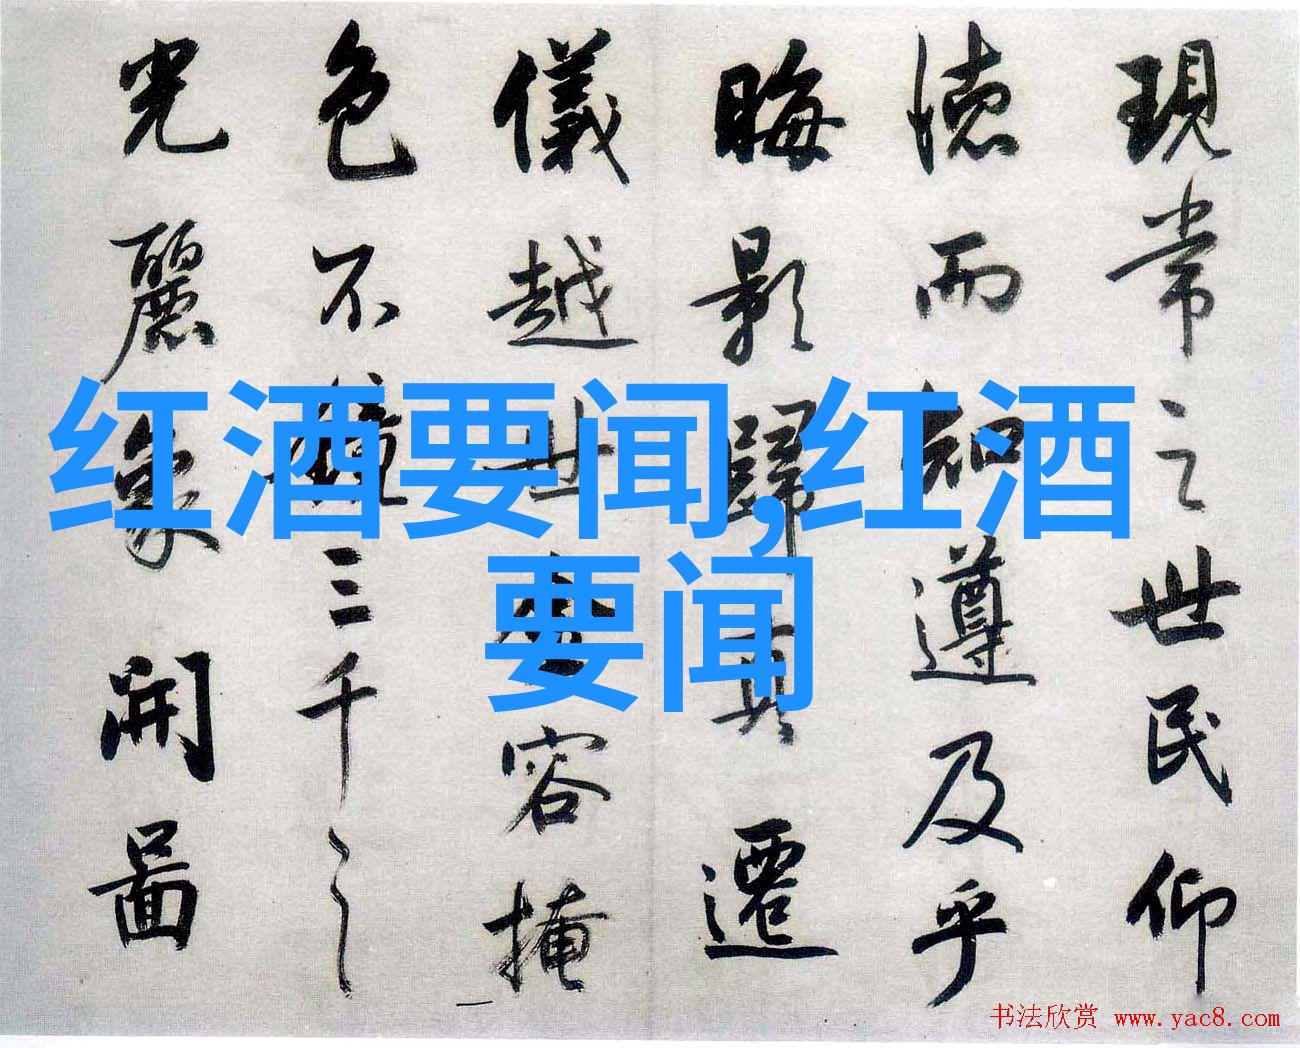 現常之世民仰
徳而知遵及乎
晦影歸真遷
儀越世金容掩
色不鏡三千之
光麗象開圖
红酒要闻,红酒
要闻
书法欣赏 www.yac8.com